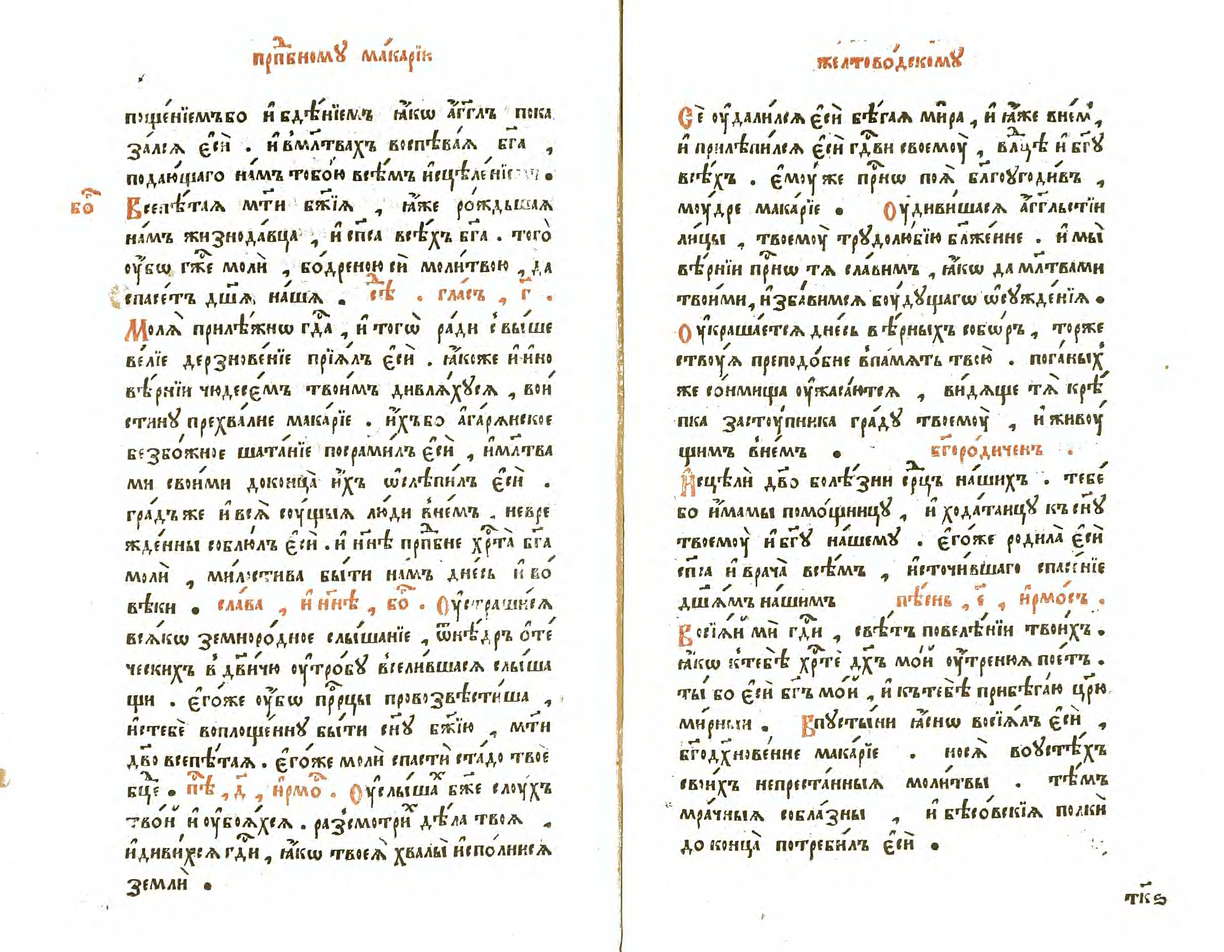 прⷣпбному макарїю
пощенїемъбо и҆ бдѣ́нїемъ ꙗ҆́кѡ а҆́гг҃лъ пока
за́лсѧ є҆сѝ . и҆ вмл҃твахъ воспѣва́ѧ бг҃а ,
подаю́щаго на́мъ тобо́ю всѣ́мъ и҆сцѣле́нїе
бⷪ҇
Всепѣ́таѧ мт҃и бж҃їѧ , ꙗ҆́же ро́ждьшаѧ
на́мъ жизнода́вца , и҆ сп҃са всѣ́хъ бг҃а . того̀
оу҆́бѡ гж҃е молѝ , бо́дреною сѝ моли́твою , да
спасе́тъ дш҃ѧ на́шѧ . сѣⷣ . гла́съ , г҃ .
Молѧ̀ прилѣ́жнѡ гдⷭ҇а , и҆ тогѡ̀ ра́ди свы́ше
ве́лїе дерзнове́нїе прїѧ́лъ є҆сѝ . ꙗ҆́коже и҆ и҆но
вѣ́рнїи чюдесє́мъ твои́мъ дивлѧ́хусѧ , вои́
стину прехва́лне мака́рїе . и҆́хъбо а҆гарѧ́нское
безбо́жное шата́нїе посрами́лъ є҆сѝ , и҆мл҃тва
ми свои́ми доконца̀ и҆́хъ ѡ҆слѣпи́лъ є҆сѝ .
гра́дъже и҆ всѧ̀ сꙋ́щыѧ лю́ди в не́мъ , невре
жде́нны соблю́лъ є҆сѝ . и҆ нн҃ѣ прⷣпбне хрⷭ҇та̀ бг҃а
молѝ , ми́лостива бы́ти на́мъ дне́сь и҆ во́
вѣки . сла́ва , и҆ нн҃ѣ , бⷪ҇ . Оу҆страши́сѧ
всѧ́кѡ земноро́дное слы́шанїе , ѿнѣ́дръ ѻ҆те́
ческихъ в дв҃ичю оу҆тро́бу всели́вшасѧ слы́ша
щи . є҆го́же оу҆́бѡ прⷪ҇рцы провозвѣсти́ша ,
и҆стебѐ воплоще́нну бы́ти сн҃у бж҃їю , мт҃и
дв҃о всепѣ́таѧ . є҆го́же молѝ спастѝ ста́до твоѐ
бц҃е . пѣⷭ҇ , д҃ , і҆рмоⷭ҇ . Оу҆слы́шаⷯ бж҃е слꙋ́хъ
тво́й и҆ оу҆боѧ́хсѧ . разсмотри́ⷯ дѣ́ла твоѧ̀ ,
и҆диви́хсѧ гдⷭ҇и , ꙗ҆́кѡ твоеѧ̀ хвалы̀ и҆спо́лнисѧ
землѧ̀ .
желтово́дскому
Сѐ оу҆дали́лсѧ є҆сѝ бѣ́гаѧ ми́ра , и҆ ꙗ҆́же вне́мъ ,
и҆ прилѣпи́лсѧ є҆сѝ гдⷭ҇ви своемꙋ̀ , влⷣцѣ и҆ бг҃у
всѣ́хъ . є҆мꙋ́же прⷭ҇нѡ поѧ̀ бл҃гоугоди́въ ,
мꙋ́дре мака́рїе . Оу҆диви́шасѧ а҆́гг҃льстїи
ли́цы , твоемꙋ̀ трудолю́бїю бл҃же́нне . и҆ мы̀
вѣ́рнїи прⷭ҇нѡ тѧ сла́вимъ , ꙗ҆́кѡ да мл҃твами
твои́ми , и҆зба́вимсѧ бꙋ́дущагѡ ѡ҆сужде́нїѧ .
Оу҆краша́етсѧ дне́сь вѣ́рныхъ собѡ́ръ , торже
ству́ѧ преподо́бне впа́мѧть твою̀ . пога́ныхъ
же со́нмища оу҆жаса́ютсѧ , ви́дѧще тѧ̀ крѣ́
пка засту́пника гра́ду твоемꙋ̀ , и҆ живꙋ́
щимъ вне́мъ . бг҃оро́диченъ .
И҆сцѣлѝ дв҃о болѣ́зни срⷣцъ на́шихъ . тебе́
бо и҆́мамы помо́щницу , и҆ хода́таицу къ сн҃у
твоемꙋ̀ и҆ бг҃у на́шему . є҆го́же родила̀ є҆сѝ
сп҃са и҆ врача̀ всѣ́мъ , и҆сточи́вшаго спасе́нїе
дш҃а́мъ на́шимъ пѣ́снь , є҃ , і҆рмо́съ .
Возсїѧ́й ми гдⷭ҇и , свѣ́тъ повелѣ́нїи твои́хъ .
ꙗ҆́кѡ ктебѣ̀ хрⷭ҇тѐ дх҃ъ мо́й оу҆́тренюѧ пое́тъ .
ты́ бо є҆сѝ бг҃ъ мо́й , и҆ кътебѣ̀ прибѣга́ю цр҃ю
ми́рныи . Впусты́ни ꙗ҆́снѡ восїѧ́лъ є҆сѝ ,
бг҃одх҃нове́нне мака́рїе . носѧ̀ воустѣ́хъ
свои́хъ непреста́нныѧ моли́твы . тѣ́мъ
мра́чныѧ собла́зны , и҆ бѣсо́вскїѧ полкѝ
до конца̀ потреби́лъ є҆сѝ .
тк҃ѕ